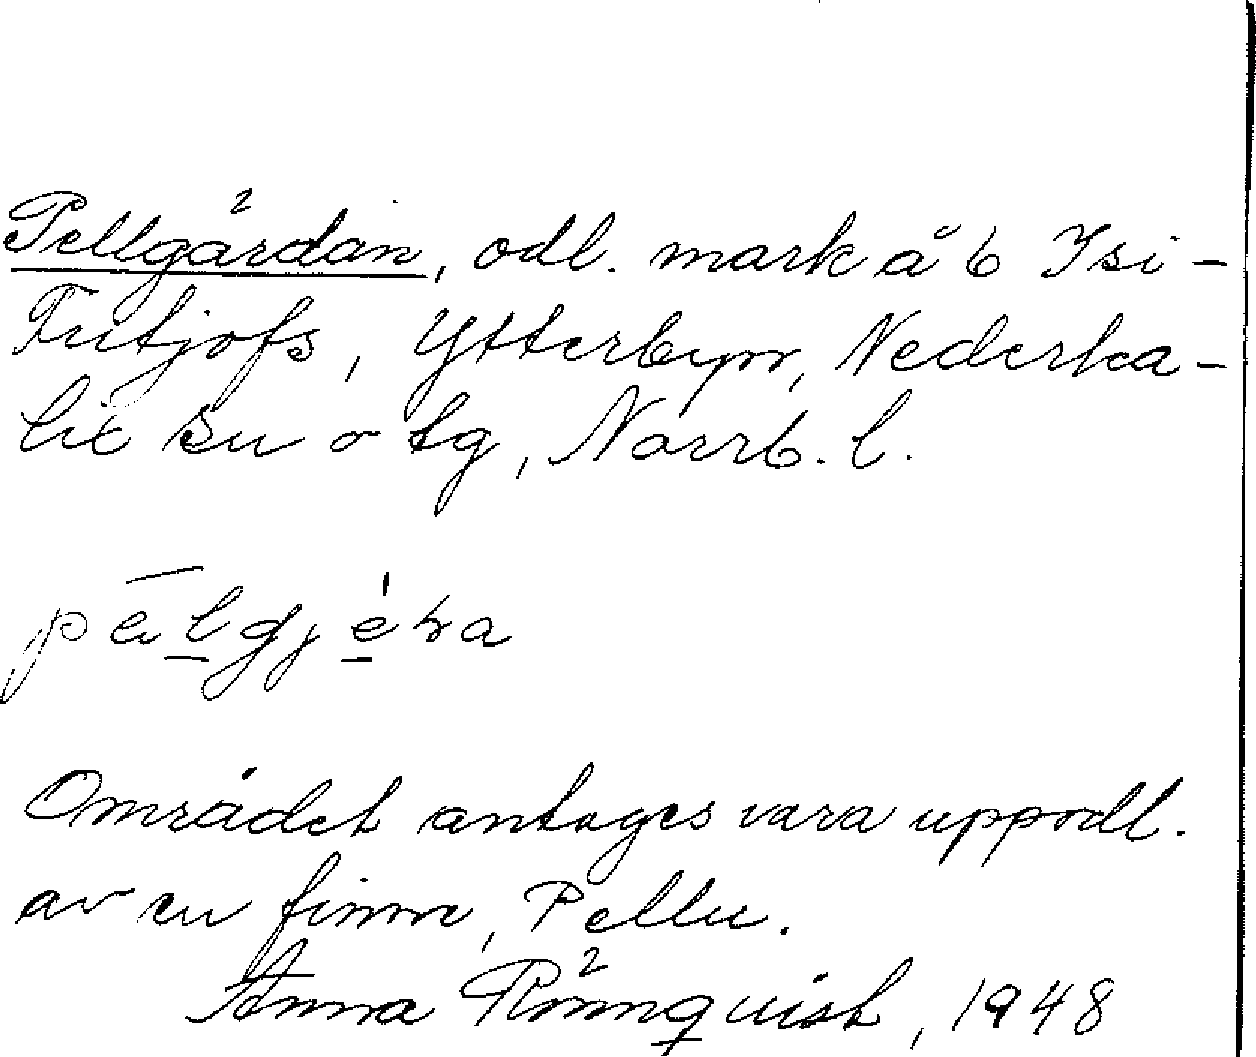 Pellgärdan, odl. mark å 6 Isi-
Fritjofs, Ytterbyn, Nederka-
lix sn o tg, Norrb. l.
Området antages vara uppodl.
av en finne, Pellu.
Anna Rönnquist, 1948